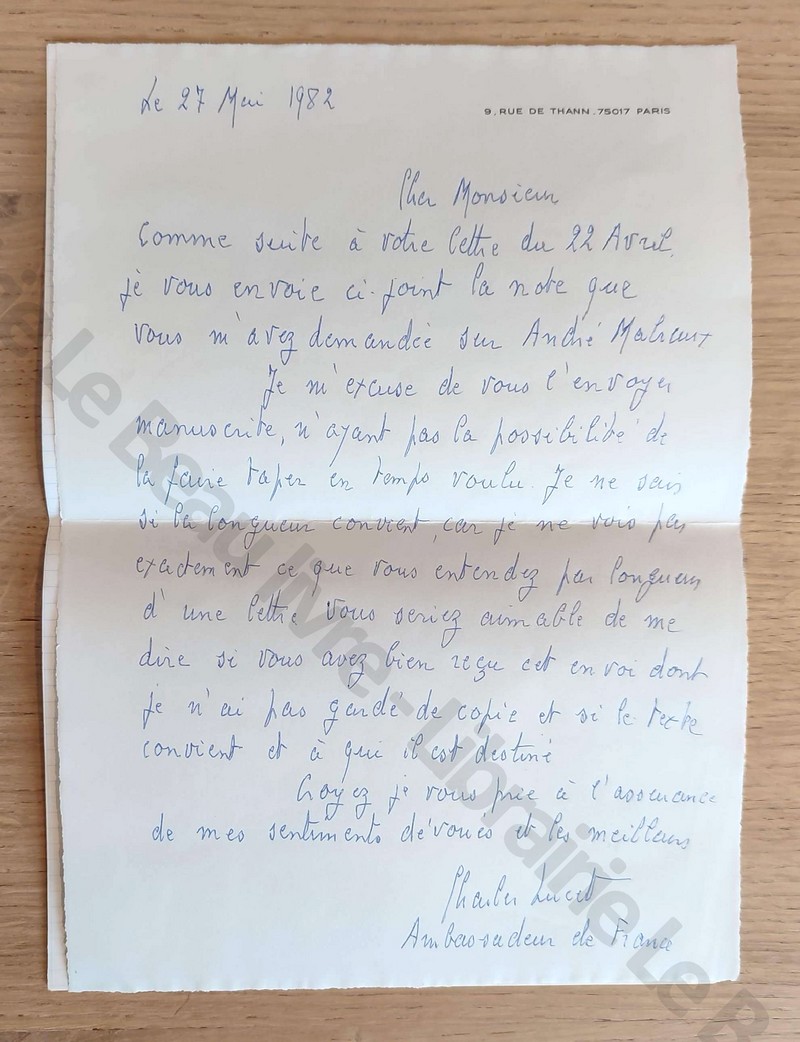 Le 27 Mai 1982
9, RUE DE THANN . 75017 PARIS
Cher Monsieur
Comme suite à votre lettre du 22 Avril,
je vous envoie ci-joint la note que
vous m'avez demandée sur André Malraux
Je m'excuse de vous l'envoyer
manuscrite, n'ayant pas la possibilité de
la faire taper en temps voulu. Je ne sais
si la longueur convient, car je ne vois pas
exactement ce que vous entendez par longueur
d'une lettre. Vous seriez aimable de me
dire si vous avez bien reçu cet envoi dont
je n'ai pas gardé de copie et si le texte
convient et à qui il est destiné
Croyez je vous prie à l'assurance
de mes sentiments dévoués et les meilleurs
Charles Lucet
Ambassadeur de France
Le Beau livre - Librairie Le B